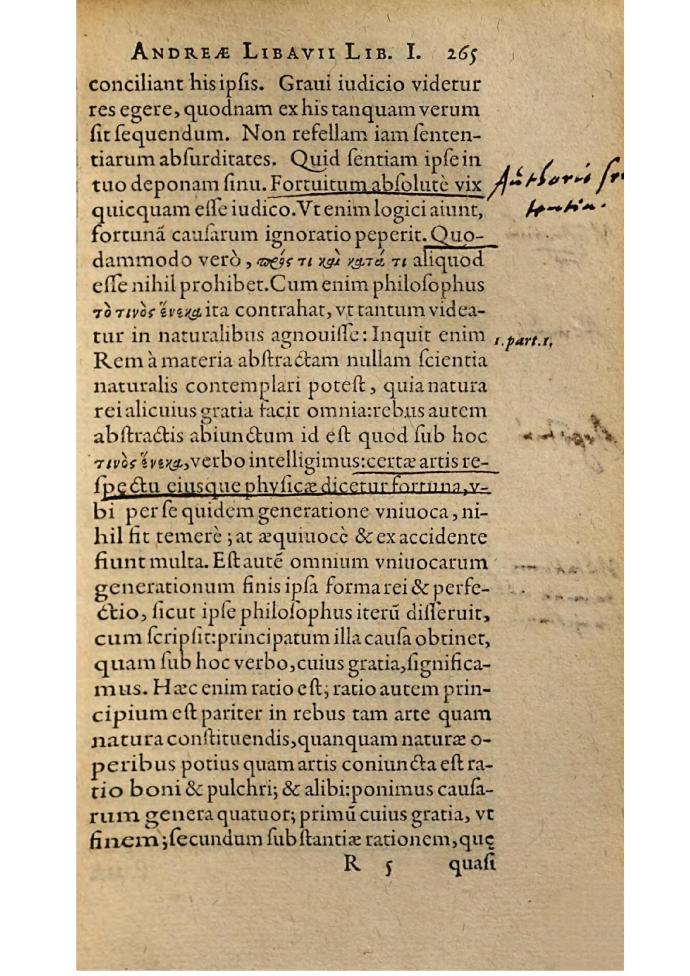 ANDREÆ LIBAVII LIB. I. 265
conciliant his ipſis. Graui iudicio videtur
res egere, quodnam ex his tanquam verum
ſit ſequendum. Non refellam iam ſenten-
tiarum abſurditates. Quid ſentiam ipſe in
tuo deponam ſinu. Fortuitum abſolutè vix
Authoris ſen
tentia.
quicquam eſſe iudico. Vt enim logici aiunt,
fortunā cauſarum ignoratio peperit. Quo-
dammodo verò, πρός τι καὶ κατά τι aliquod
eſſe nihil prohibet. Cum enim philoſophus
τὸ τινὸς ἕνεκα ita contrahat, vt tantum videa-
tur in naturalibus agnouiſſe: Inquit enim
1. part. 1.
Rem à materia abſtractam nullam ſcientia
naturalis contemplari poteſt, quia natura
rei alicuius gratia facit omnia: rebus autem
abſtractis abiunctum id eſt quod ſub hoc
τινὸς ἕνεκα, verbo intelligimus: certæ artis re-
ſpectu eiusque phyſicæ dicetur fortuna, v-
bi per ſe quidem generatione vniuoca, ni-
hil fit temerè; at æquiuocè & ex accidente
fiunt multa. Eſt autē omnium vniuocarum
generationum finis ipſa forma rei & perfe-
ctio, ſicut ipſe philoſophus iterū diſſeruit,
cum ſcripſit: principatum illa cauſa obtinet,
quam ſub hoc verbo, cuius gratia, ſignifica-
mus. Hæc enim ratio eſt; ratio autem prin-
cipium eſt pariter in rebus tam arte quam
natura conſtituendis, quanquam naturæ o-
peribus potius quam artis coniuncta eſt ra-
tio boni & pulchri; & alibi: ponimus cauſa-
rum genera quatuor; primū cuius gratia, vt
finem; ſecundum ſubſtantiæ rationem, quę
R 5 quaſi